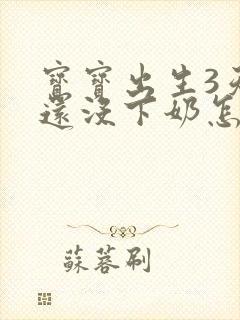 寶寶出生3天
還沒下奶怎
蘇蓉刷